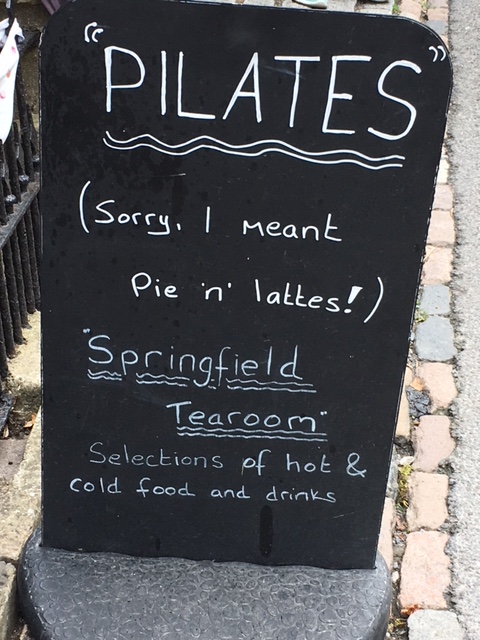 "PILATES"
(Sorry, I meant
Pie 'n' lattes!)
"Springfield
Tearoom"
Selections of hot &
cold food and drinks